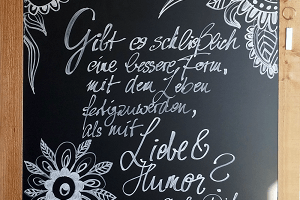 Gibt es schließlich
eine bessere Form,
mit dem Leben
fertigzuwerden,
als mit
Liebe &
Humor?